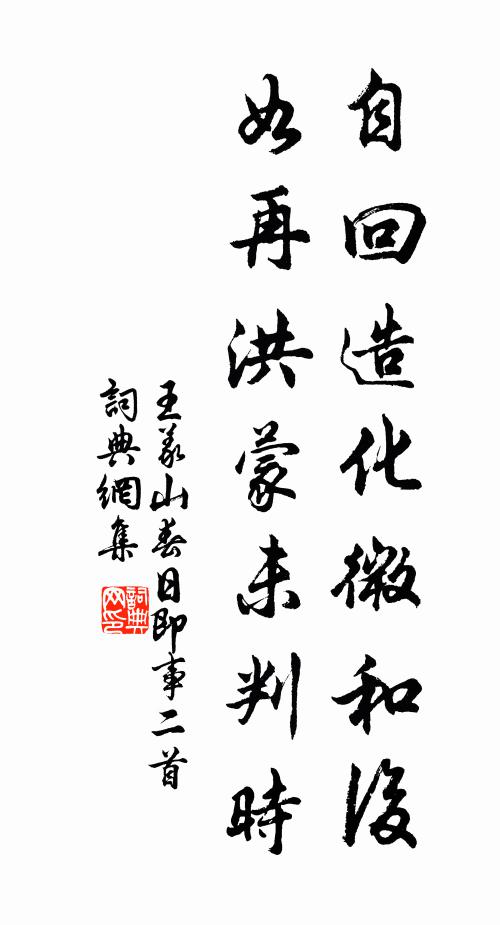 自回造化微和後
如再洪蒙未判時
王義山春日即事二首
詞典網集
詞典网印